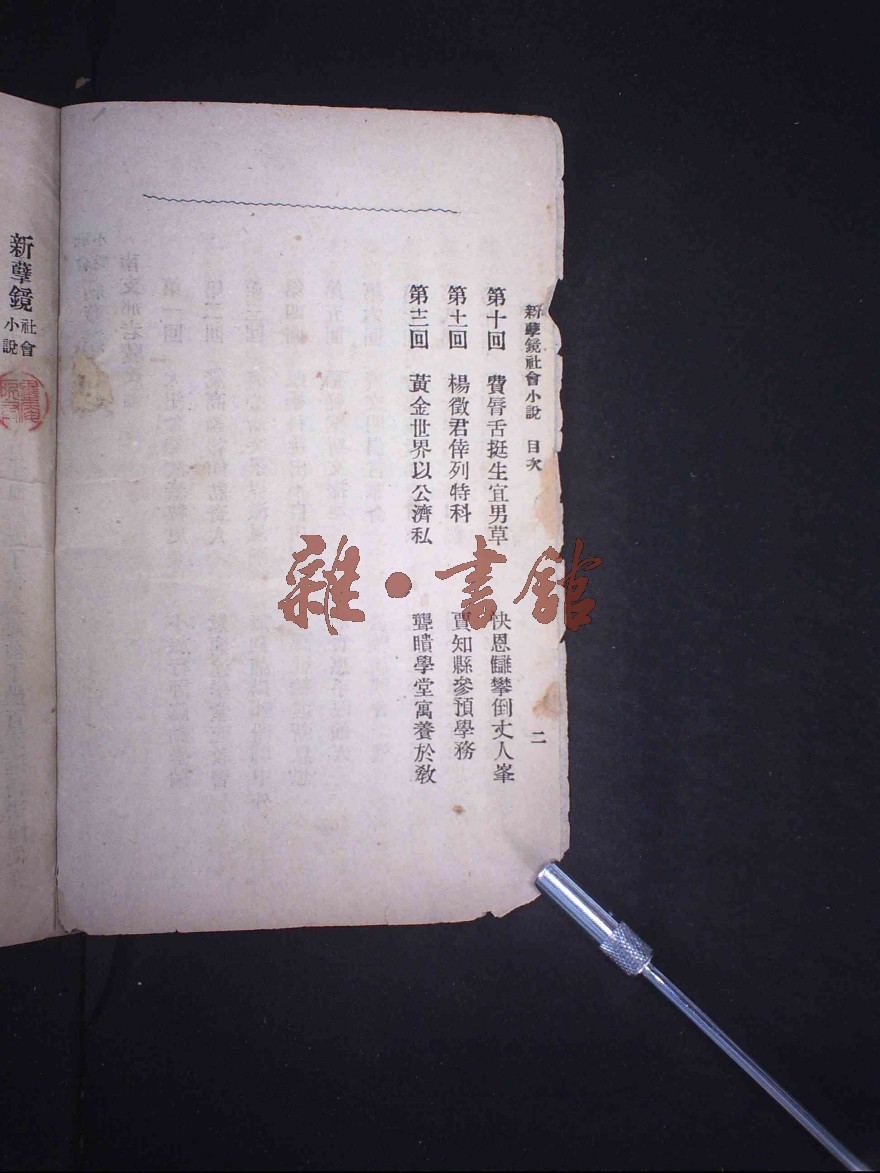 新孽鏡社會小說 目次 二
第十回 費脣舌挺生宜男草 快恩讎攀倒丈人峯
第十一回 楊徵君倖列特科 賈知縣參預學務
第十二回 黃金世界以公濟私 聾瞶學堂寓養於敎
新孽鏡 社會小說
雜·書館